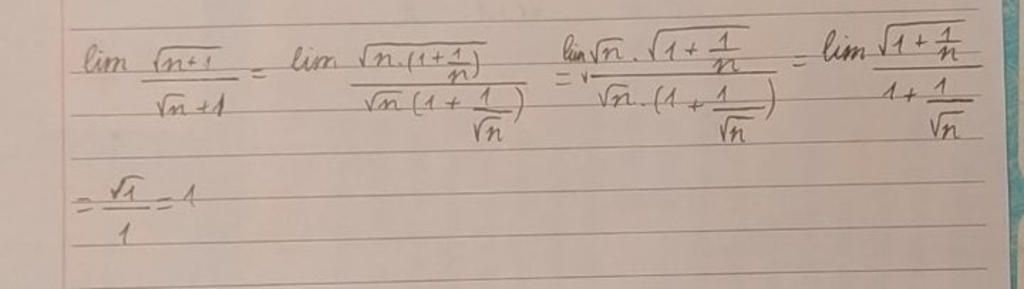 lim √(n+1) / (√n + 1) = lim √(n·(1 + 1/n)) / (√n (1 + 1/√n)) = lim √n · √(1 + 1/n) / (√n · (1 + 1/√n)) = lim √(1 + 1/n) / (1 + 1/√n)
= √1 / 1 = 1